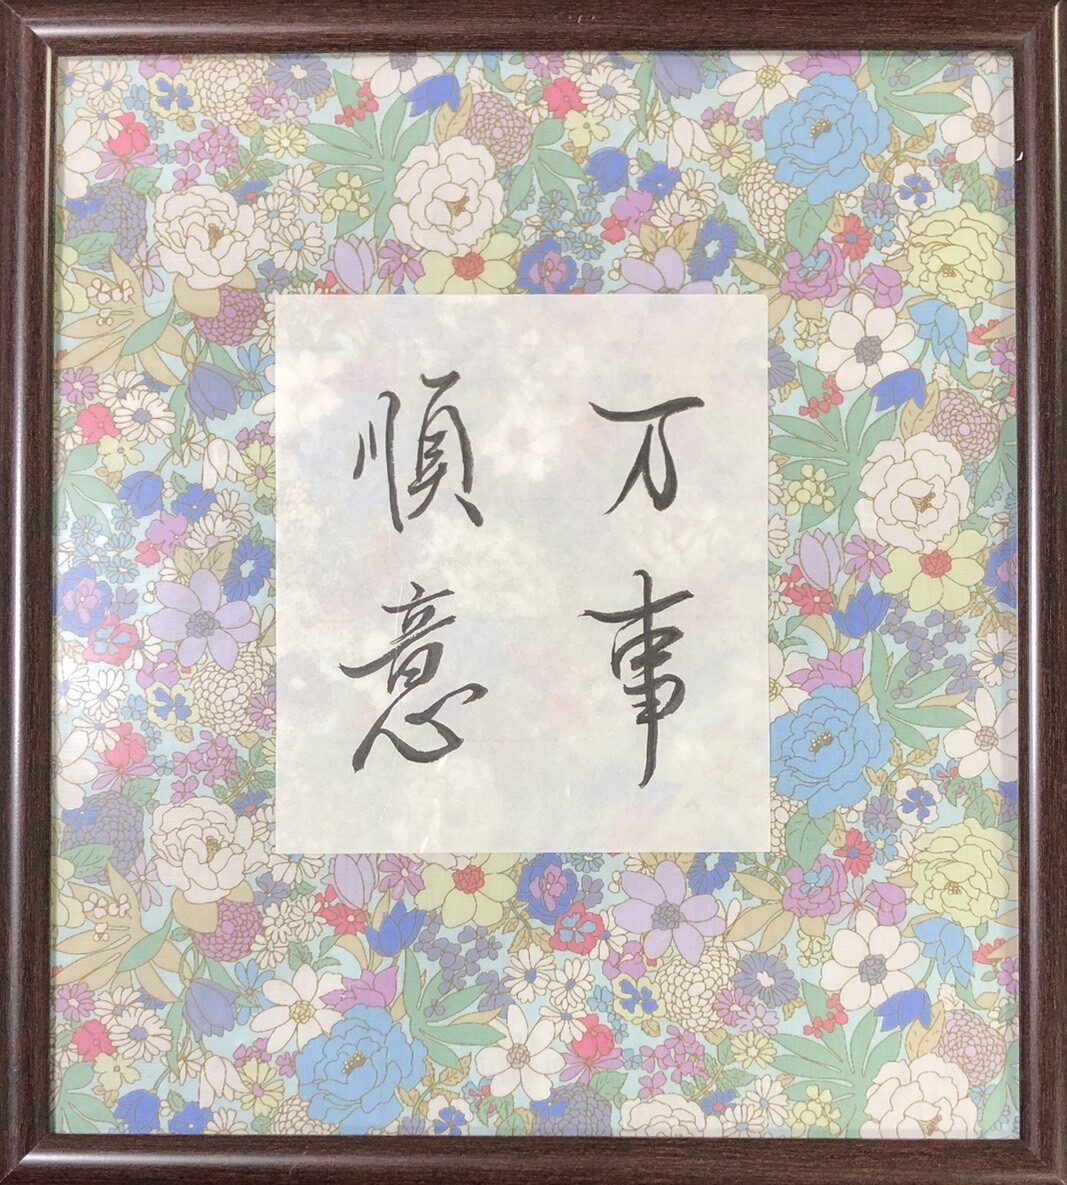 万事
順意